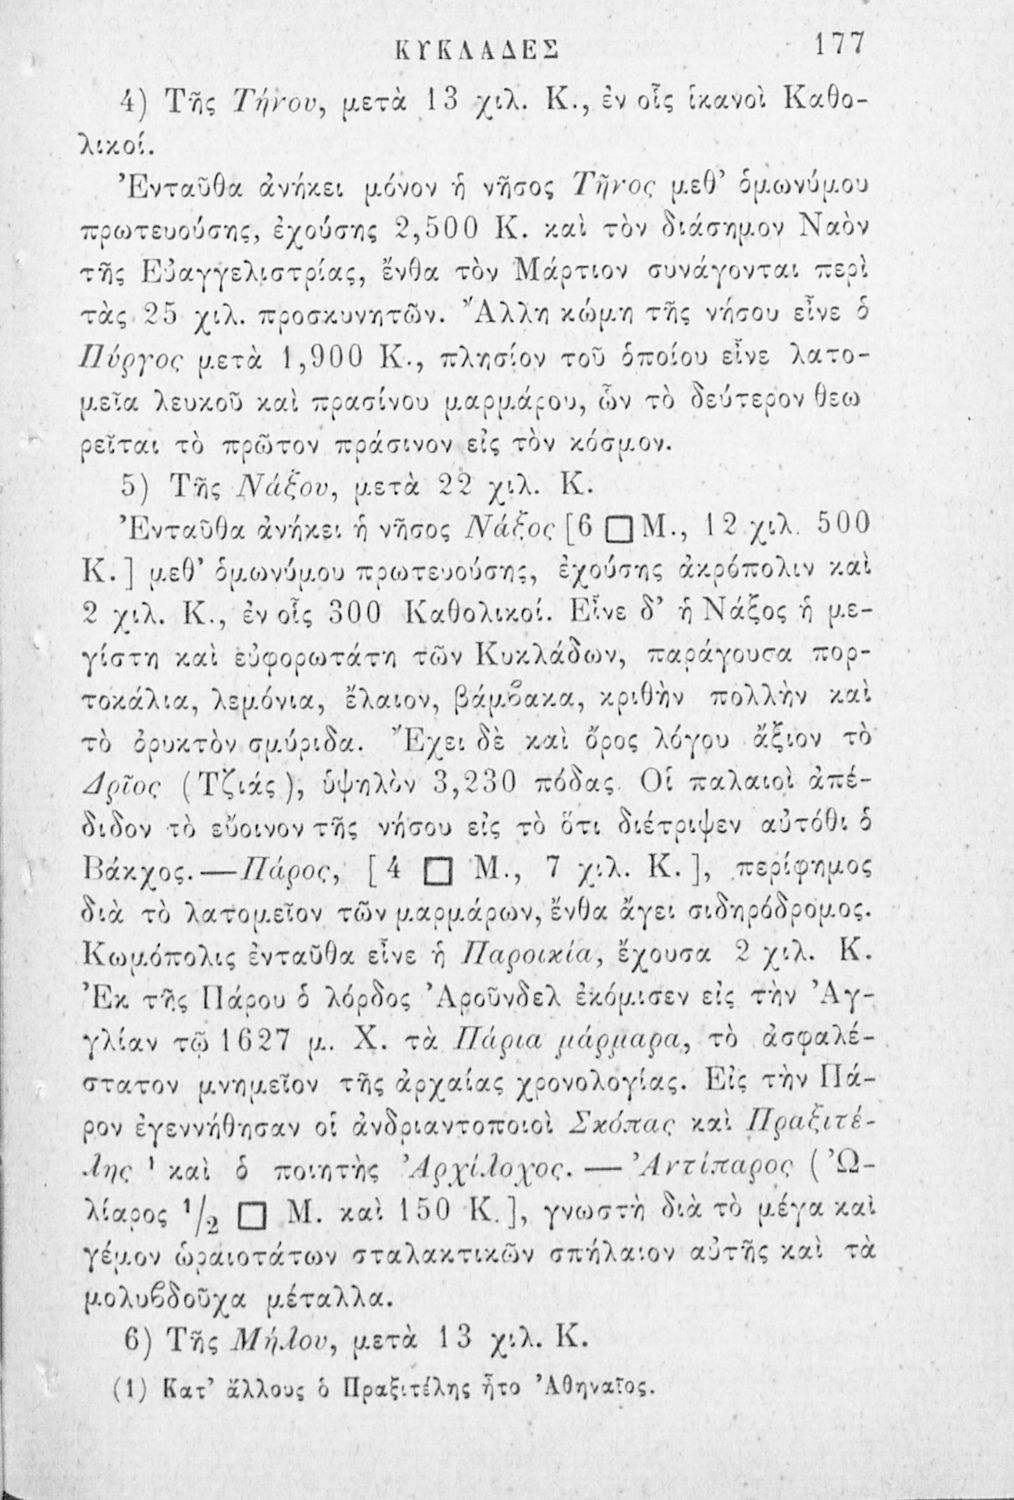 ΚΥΚΛΑΔΕΣ 177
4) Τῆς Τήνου, μετὰ 13 χιλ. Κ., ἐν οἷς ἱκανοὶ Καθο-
λικοί.
Ἐνταῦθα ἀνήκει μόνον ἡ νῆσος Τῆνος μεθ’ ὁμωνύμου
πρωτευούσης, ἐχούσης 2,500 Κ. καὶ τὸν διάσημον Ναὸν
τῆς Εὐαγγελιστρίας, ἔνθα τὸν Μάρτιον συνάγονται περὶ
τὰς 25 χιλ. προσκυνητῶν. Ἄλλη κώμη τῆς νήσου εἶνε ὁ
Πύργος μετὰ 1,900 Κ., πλησίον τοῦ ὁποίου εἶνε λατο-
μεῖα λευκοῦ καὶ πρασίνου μαρμάρου, ὧν τὸ δεύτερον θεω
ρεῖται τὸ πρῶτον πράσινον εἰς τὸν κόσμον.
5) Τῆς Νάξου, μετὰ 22 χιλ. Κ.
Ἐνταῦθα ἀνήκει ἡ νῆσος Νάξος [6 □ Μ., 12 χιλ. 500
Κ.] μεθ’ ὁμωνύμου πρωτευούσης, ἐχούσης ἀκρόπολιν καὶ
2 χιλ. Κ., ἐν οἷς 300 Καθολικοί. Εἶνε δ’ ἡ Νάξος ἡ με-
γίστη καὶ εὐφορωτάτη τῶν Κυκλάδων, παράγουσα πορ-
τοκάλια, λεμόνια, ἔλαιον, βάμϐακα, κριθὴν πολλὴν καὶ
τὸ ὀρυκτὸν σμύριδα. Ἔχει δὲ καὶ ὄρος λόγου ἄξιον τὸ
Δρῖος (Τζιάς), ὑψηλὸν 3,230 πόδας. Οἱ παλαιοὶ ἀπέ-
διδον τὸ εὔοινον τῆς νήσου εἰς τὸ ὅτι διέτριψεν αὐτόθι ὁ
Βάκχος.—Πάρος, [4 □ Μ., 7 χιλ. Κ.], περίφημος
διὰ τὸ λατομεῖον τῶν μαρμάρων, ἔνθα ἄγει σιδηρόδρομος.
Κωμόπολις ἐνταῦθα εἶνε ἡ Παροικία, ἔχουσα 2 χιλ. Κ.
Ἐκ τῆς Πάρου ὁ λόρδος Ἀροῦνδελ ἐκόμισεν εἰς τὴν Ἀγ-
γλίαν τῷ 1627 μ. Χ. τὰ Πάρια μάρμαρα, τὸ ἀσφαλέ-
στατον μνημεῖον τῆς ἀρχαίας χρονολογίας. Εἰς τὴν Πά-
ρον ἐγεννήθησαν οἱ ἀνδριαντοποιοὶ Σκόπας καὶ Πραξιτέ-
λης ¹ καὶ ὁ ποιητὴς Ἀρχίλοχος. — Ἀντίπαρος (Ὠ-
λίαρος ¹/₂ □ Μ. καὶ 150 Κ.], γνωστὴ διὰ τὸ μέγα καὶ
γέμον ὡραιοτάτων σταλακτικῶν σπήλαιον αὐτῆς καὶ τὰ
μολυϐδοῦχα μέταλλα.
6) Τῆς Μήλου, μετὰ 13 χιλ. Κ.
(1) Κατ’ ἄλλους ὁ Πραξιτέλης ἦτο Ἀθηναῖος.